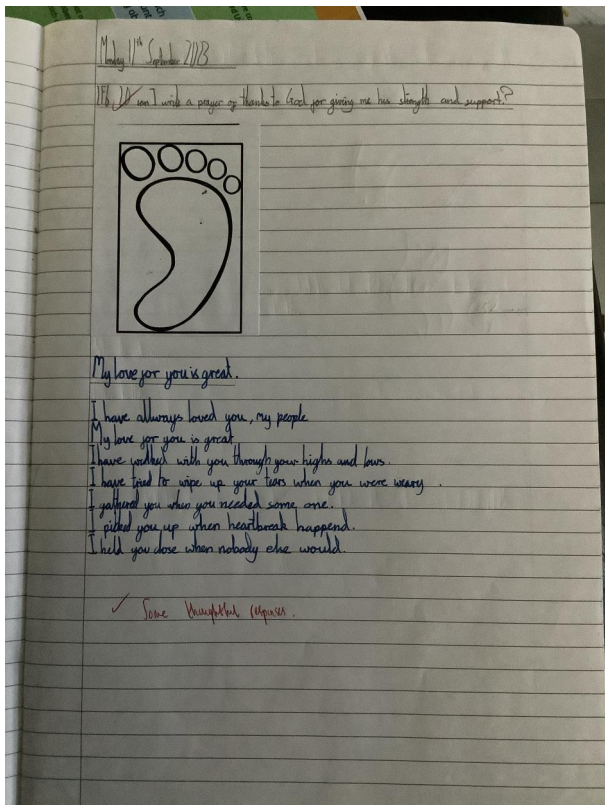 Monday 11th September 2023
LF: can I write a prayer of thanks to God for giving me his strength and support?
My love for you is great.
I have allways loved you, my people
My love for you is great
I have walked with you through your highs and lows.
I have tried to wipe up your tears when you were weary.
I gathered you when you needed some one.
I picked you up when heartbreak happend.
I held you close when nobody else would.
Some thoughtful responses.